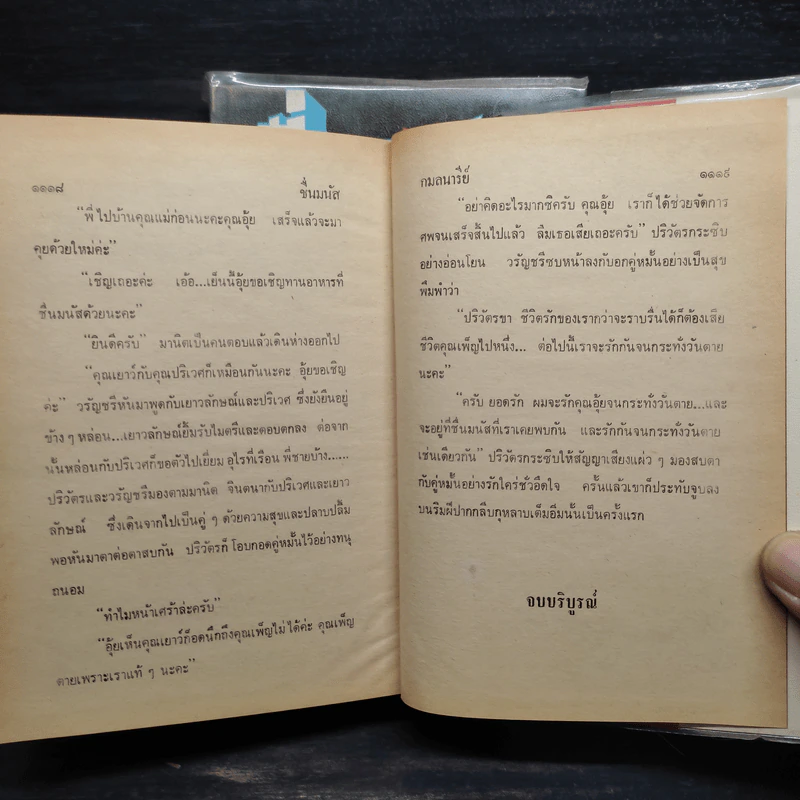 ๑๑๑๘ ชื่นมนัส
“พี่ไปบ้านคุณแม่ก่อนนะคะคุณอุ้ย เสร็จแล้วจะมา
คุยด้วยใหม่ค่ะ”
“เชิญเถอะค่ะ เอ้อ...เย็นนี้อุ้ยขอเชิญทานอาหารที่
ชื่นมนัสด้วยนะคะ”
“ยินดีครับ” มานิตเป็นคนตอบแล้วเดินห่างออกไป
“คุณเยาว์กับคุณปริเวศก็เหมือนกันนะคะ อุ้ยขอเชิญ
ค่ะ” วรัญชรีหันมาพูดกับเยาวลักษณ์และปริเวศ ซึ่งยังยืนอยู่
ข้าง ๆ หล่อน...เยาวลักษณ์ยิ้มรับไมตรีและตอบตกลง ต่อจาก
นั้นหล่อนกับปริเวศก็ขอตัวไปเยี่ยม อุไรที่เรือน พี่ชายบ้าง......
ปริวัตรและวรัญชรีมองตามมานิต จินตนากับปริเวศและเยาว
ลักษณ์ ซึ่งเดินจากไปเป็นคู่ ๆ ด้วยความสุขและปลาบปลื้ม
พอหันมาตาต่อตาสบกัน ปริวัตรก็โอบกอดคู่หมั้นไว้อย่างทนุ
ถนอม
“ทำไมหน้าเศร้าล่ะครับ”
“อุ้ยเห็นคุณเยาว์ก็อดนึกถึงคุณเพ็ญไม่ได้ค่ะ คุณเพ็ญ
ตายเพราะเราแท้ ๆ นะคะ”
กมลนารีย์ ๑๑๑๙
“อย่าคิดอะไรมากซิครับ คุณอุ้ย เราก็ได้ช่วยจัดการ
ศพจนเสร็จสิ้นไปแล้ว ลืมเธอเสียเถอะครับ” ปริวัตรกระซิบ
อย่างอ่อนโยน วรัญชรีซบหน้าลงกับอกคู่หมั้นอย่างเป็นสุข
พึมพำว่า
“ปริวัตรขา ชีวิตรักของเรากว่าจะราบรื่นได้ก็ต้องเสีย
ชีวิตคุณเพ็ญไปหนึ่ง... ต่อไปนี้เราจะรักกันจนกระทั่งวันตาย
นะคะ”
“ครับ ยอดรัก ผมจะรักคุณอุ้ยจนกระทั่งวันตาย...และ
จะอยู่ที่ชื่นมนัสที่เราเคยพบกัน และรักกันจนกระทั่งวันตาย
เช่นเดียวกัน” ปริวัตรกระซิบให้สัญญาเสียงแผ่ว ๆ มองสบตา
กับคู่หมั้นอย่างรักใคร่ชั่วอึดใจ ครั้นแล้วเขาก็ประทับจูบลง
บนริมฝีปากกลีบกุหลาบเต็มอิ่มนั้นเป็นครั้งแรก
จบบริบูรณ์